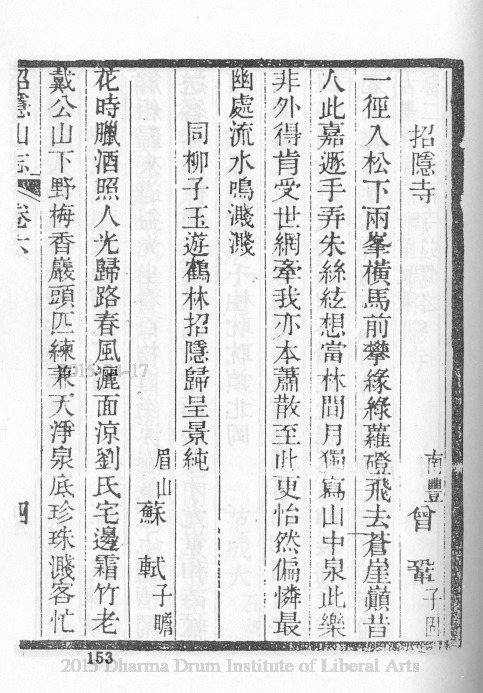 招隱寺
南豐曾 鞏子固
一徑入松下兩峯橫馬前攀緣綠蘿磴飛去蒼崖巔昔
人此嘉遯手弄朱絲絃想當林間月獨寫山中泉此樂
非外得肯受世網牽我亦本蕭散至此更怡然偏憐最
幽處流水鳴濺濺
同柳子玉遊鶴林招隱歸呈景純
眉山蘇 軾子瞻
花時臘酒照人光歸路春風灑面涼劉氏宅邊霜竹老
戴公山下野梅香巖頭匹練兼天淨泉底珍珠濺客忙
招隱山志 卷六 四
153
2013 Dharma Drum Institute of Liberal Arts